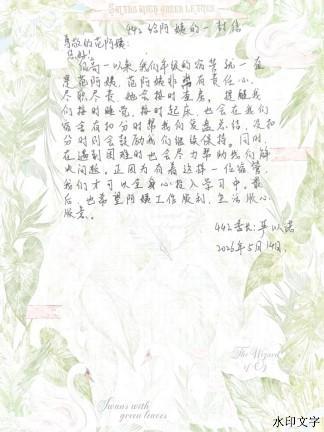 SWANS WITH GREEN LEAVES
442给阿姨的一封信
尊敬的范阿姨:
您好!
从高一以来,我们年级的宿管就一直
是范阿姨,范阿姨非常有责任心,
尽职尽责,她会按时查房,提醒我
们按时睡觉,按时起床,也会在我们
宿舍有扣分时帮我们复盘总结,没扣
分时则会鼓励我们继续保持。同时,
在遇到困难时也会尽力帮助我们解
决问题。正因为有着这样一位宿管,
我们才可以全身心投入学习中。最
后,也希望阿姨工作顺利,生活顺心
顺意。
442舍长
2026年5月14日
Swans with
green leaves
The Wizard
of Oz
水印文字